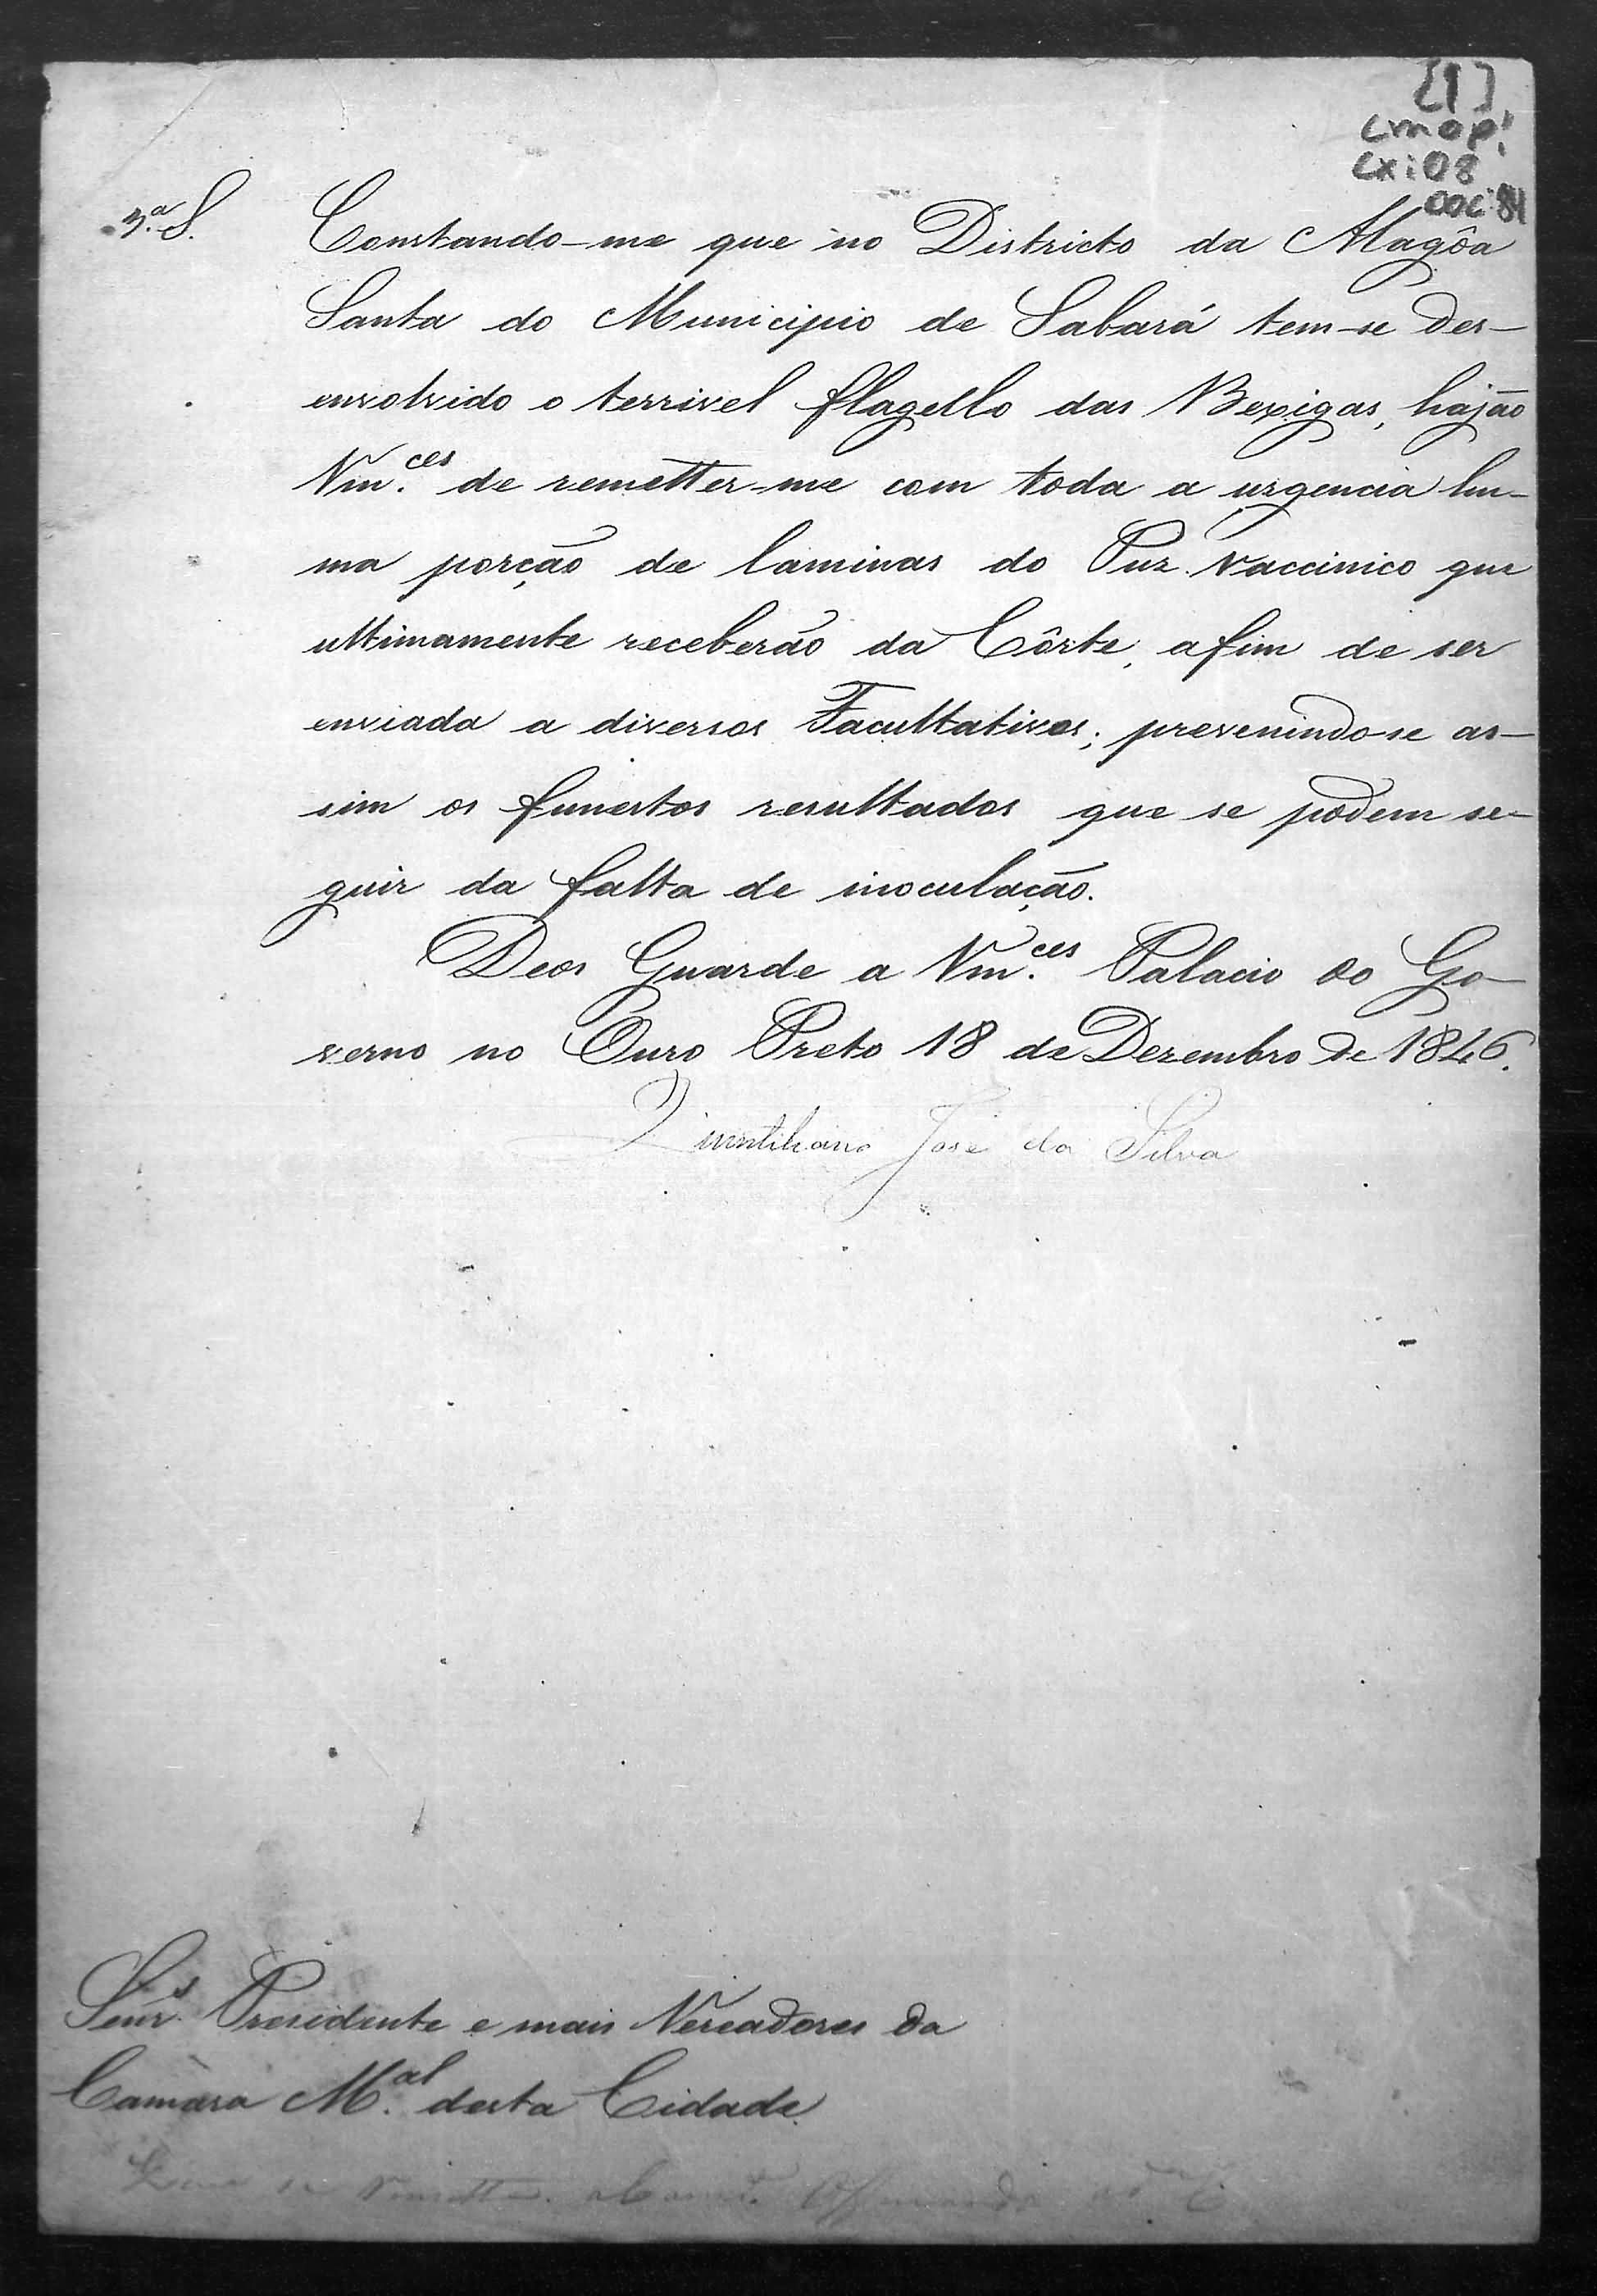 [1]
cmop!
cx:08
doc:81
3.ª S.
Constando-me que no Districto da Alagôa
Santa do Municipio de Sabará tem-se des-
envolvido o terrivel flagello das Bexigas, hajão
Vm.ces de remetter-me com toda a urgencia hu-
ma porção de laminas do Puz vaccinico que
ultimamente receberão da Côrte, afim de ser
enviada a diversos Facultativos; prevenindo-se as-
sim os funestos resultados que se podem se-
guir da falta de inoculação.
Deos Guarde a Vm.ces Palacio do Go-
verno no Ouro Preto 18 de Dezembro de 1846.
Quintiliano José da Silva
Senr.s Presidente e mais Vereadores da
Camara M.al desta Cidade